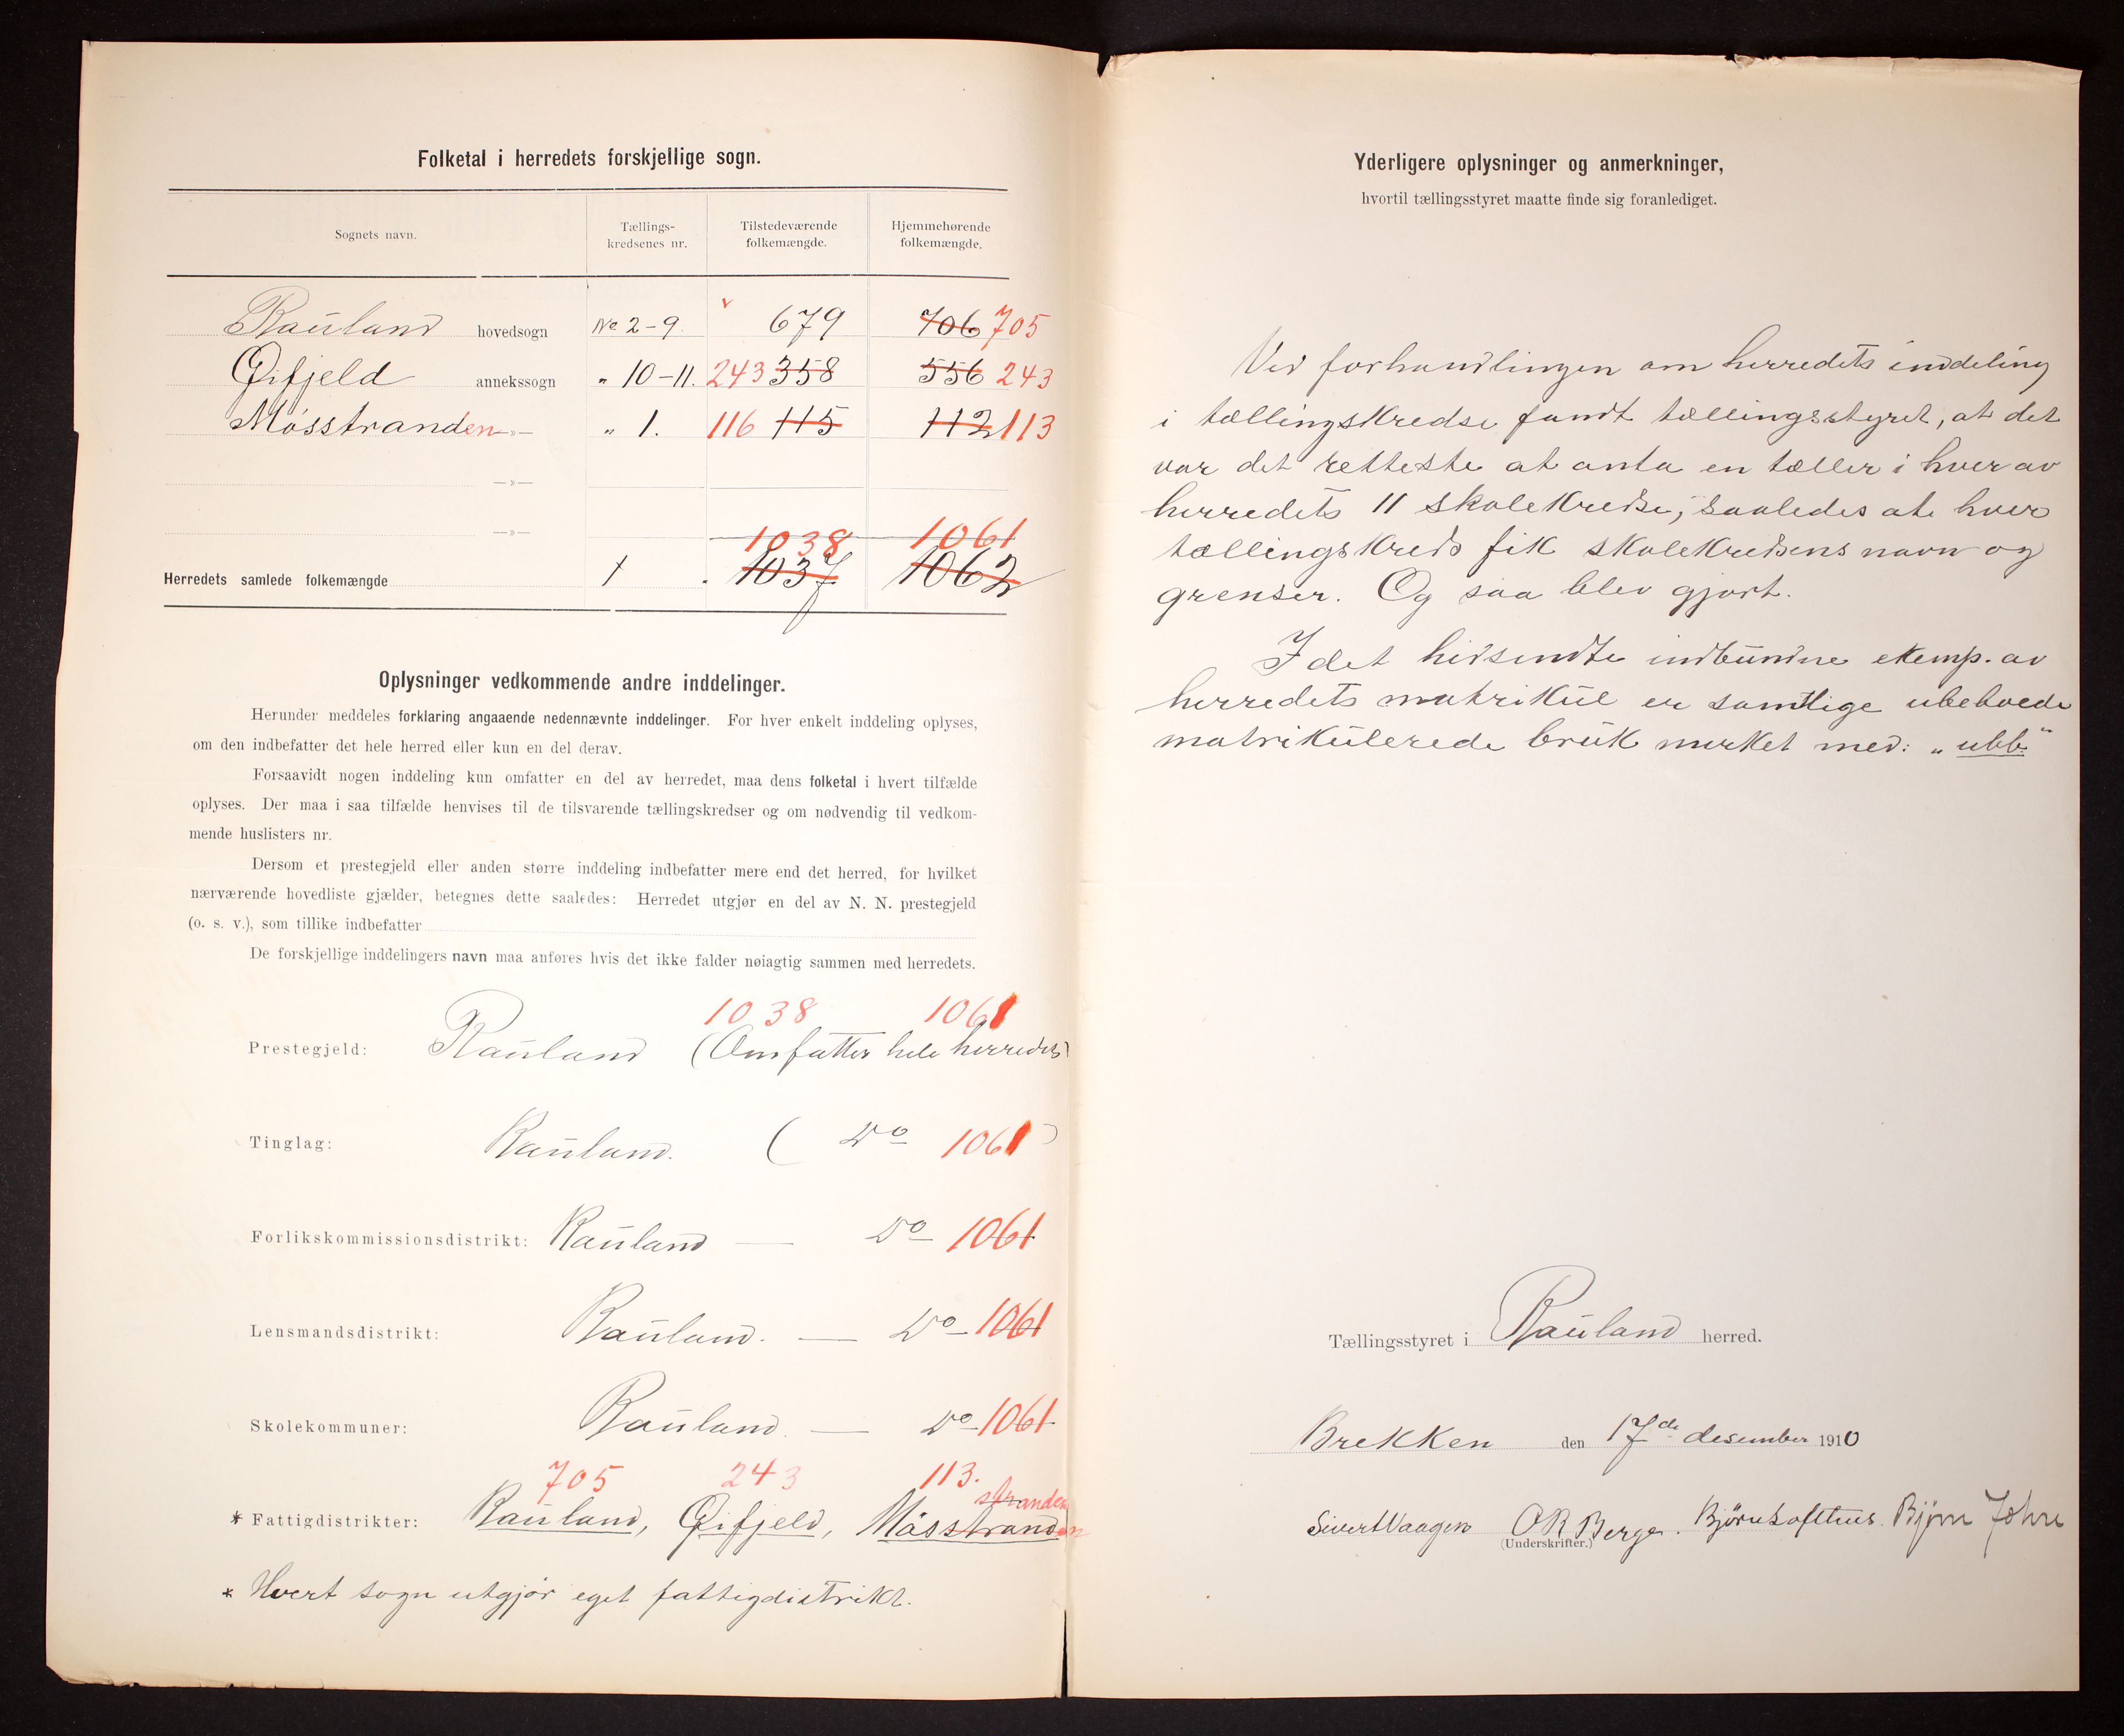 Folketal i herredets forskjellige sogn.
Sognets navn.
Tællings-
kredsenes nr.
Tilstedeværende
folkemængde.
Hjemmehørende
folkemængde.
Rauland hovedsogn No 2-9. 679 706 705
Øifjeld annekssogn „ 10-11. 243 358 556 243
Mösstranden —»— „ 1. 116 115 112 113
—»—
—»—
1038 1061
Herredets samlede folkemængde 1037 1062
Oplysninger vedkommende andre inddelinger.
Herunder meddeles forklaring angaaende nedennævnte inddelinger. For hver enkelt inddeling oplyses,
om den indbefatter det hele herred eller kun en del derav.
Forsaavidt nogen inddeling kun omfatter en del av herredet, maa dens folketal i hvert tilfælde
oplyses. Der maa i saa tilfælde henvises til de tilsvarende tællingskredser og om nødvendig til vedkom-
mende huslisters nr.
Dersom et prestegjeld eller anden større inddeling indbefatter mere end det herred, for hvilket
nærværende hovedliste gjælder, betegnes dette saaledes: Herredet utgjør en del av N. N. prestegjeld
(o. s. v.), som tillike indbefatter
De forskjellige inddelingers navn maa anføres hvis det ikke falder nøiagtig sammen med herredets.
1038 1061
Prestegjeld: Rauland (Omfatter hele herredet)
Tinglag: Rauland. ( Do 1061 )
Forlikskommissionsdistrikt: Rauland — Do 1061
Lensmandsdistrikt: Rauland. — Do 1061
Skolekommuner: Rauland. — Do 1061
705 243 113.
stranden
* Fattigdistrikter: Rauland, Øifjeld, Mösstranden
* Hvert sogn utgjör eget fattigdistrikt.
Yderligere oplysninger og anmerkninger,
hvortil tællingsstyret maatte finde sig foranlediget.
Ved forhandlingen om herredets inddeling
i tællingskredse fandt tællingsstyret, at det
var det retteste at anta en tæller i hver av
herredets 11 skolekredse, saaledes at hver
tællingskreds fik skolekredsens navn og
grenser. Og saa blev gjort.
I det hidsendte indbundne eksemp. av
herredets matrikul er samtlige ubeboede
matrikulerede bruk merket med: „ubb."
Tællingsstyret i Rauland herred.
Brekken den 17de desember 1910
Sivert Vaagen O R Berge. Björn Lofthus. Björn Johre
(Underskrifter.)